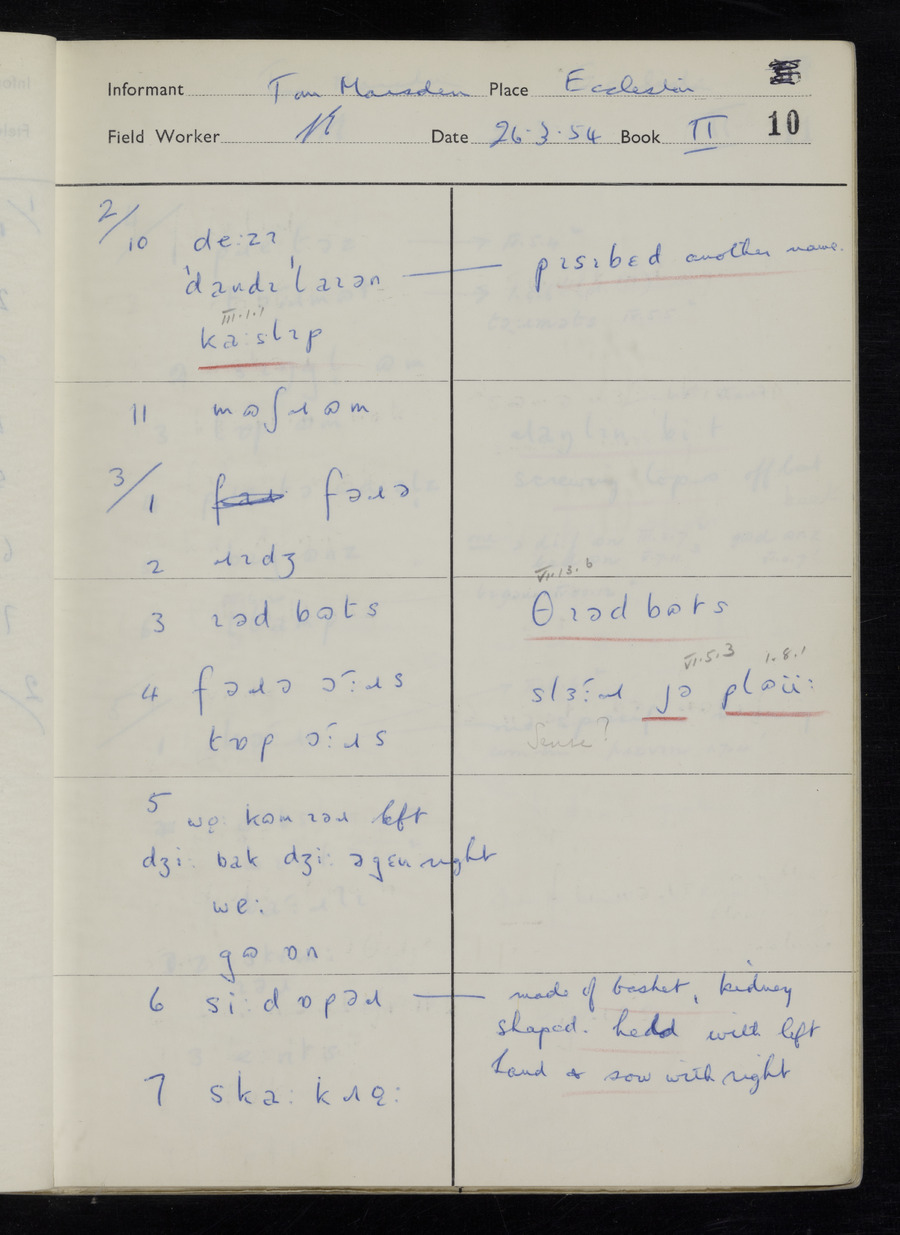 Informant Tom Marsden Place Eccleston
Field Worker Date 26.3.54 Book II 10
2/10 de:zɪ
ˈdandɪˈlaɪən — pɪsɪbɛd another name.
III.1.1
ka:slɪp
11 mɷʃɹɷm
3/1 fəɹə
2 ɹɪdʒ
VII.13.6
3 ɪəd bɷts θɪəd bɷts
VI.5.3 1.8.1
4 fəɹə
tɒp
Sense?
5 kɷm left
dʒi: bak dʒi: əgɛn right
we:
gɷ ɒn
6 si:dɒpəɹ — made of basket, kidney
shaped. held with left
hand & sow with right
7 ska:kɹo̜: